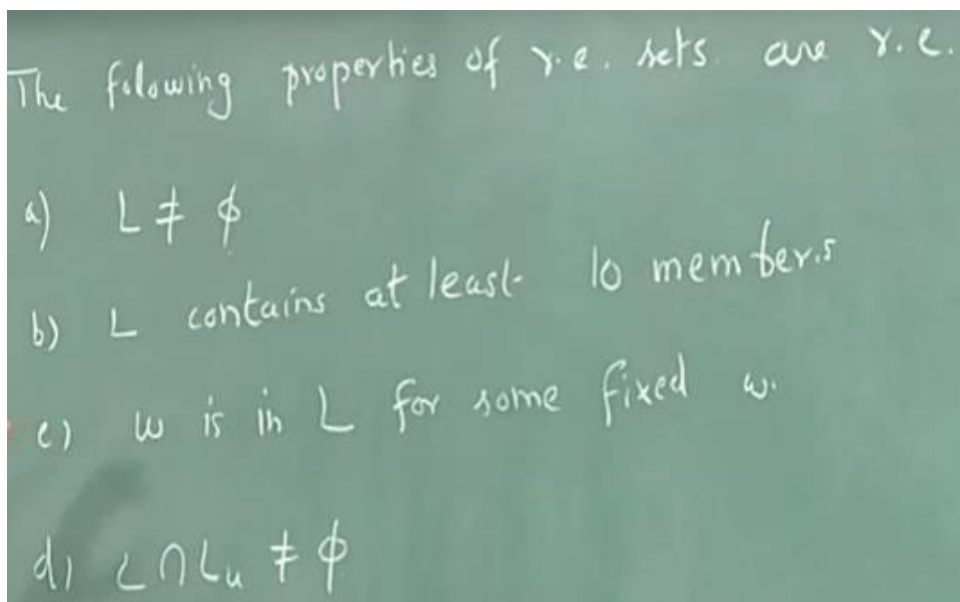 The folowing properties of r.e. sets are r.e.
a) L ≠ ϕ
b) L contains at least 10 members
c) w is in L for some fixed w.
d) L ∩ Lu ≠ ϕ